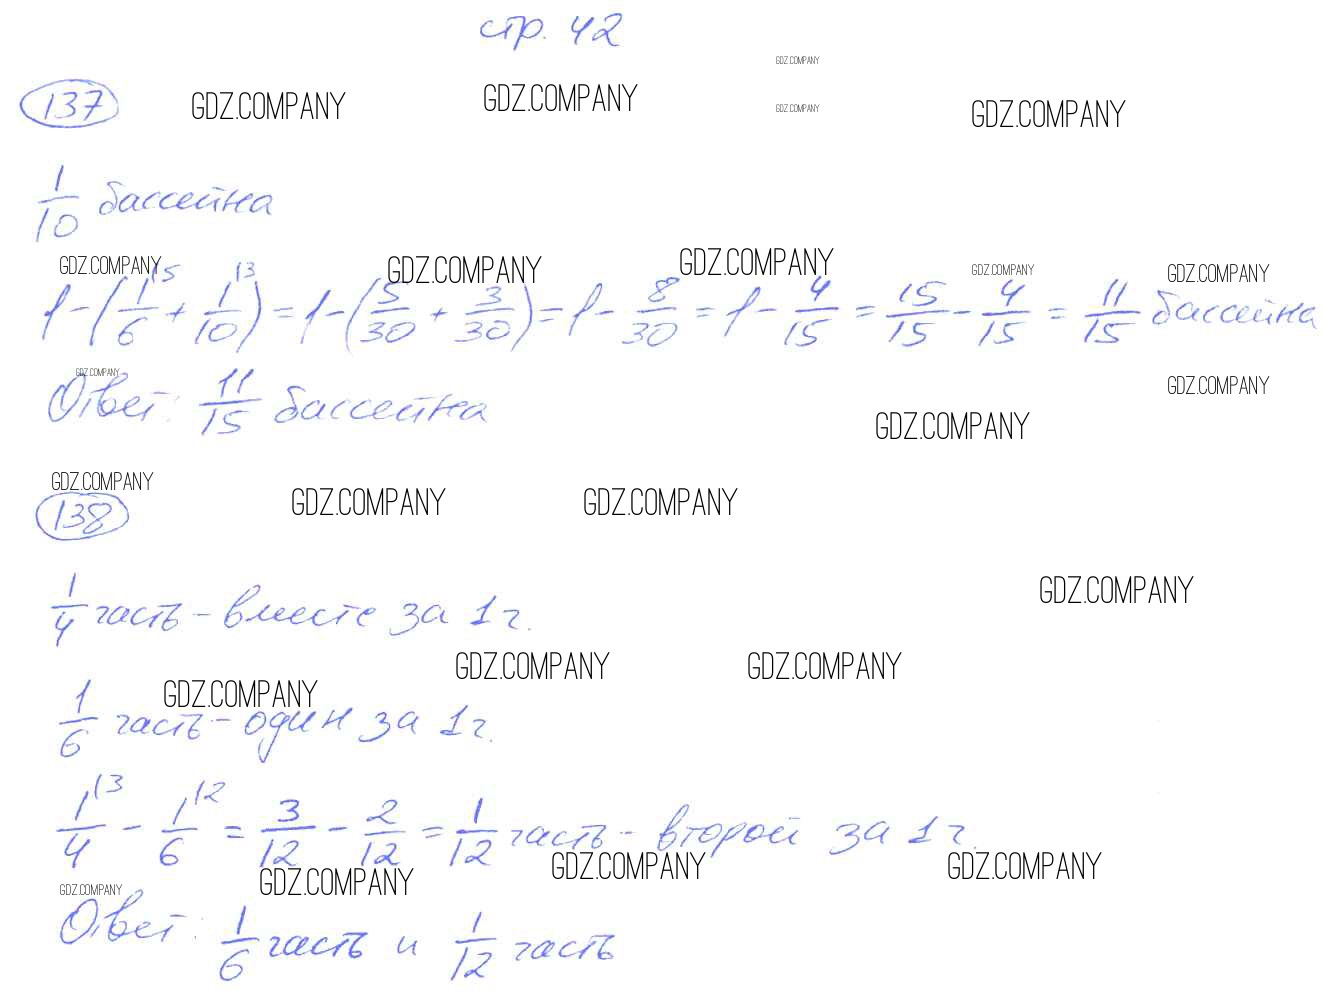 стр. 42
GDZ.COMPANY
137 GDZ.COMPANY GDZ.COMPANY GDZ.COMPANY GDZ.COMPANY
1/10 бассейна
GDZ.COMPANY GDZ.COMPANY GDZ.COMPANY GDZ.COMPANY GDZ.COMPANY
1 - (1/6 \5 + 1/10 \3) = 1 - (5/30 + 3/30) = 1 - 8/30 = 1 - 4/15 = 15/15 - 4/15 = 11/15 бассейна
GDZ.COMPANY GDZ.COMPANY
Ответ: 11/15 бассейна
GDZ.COMPANY
GDZ.COMPANY GDZ.COMPANY GDZ.COMPANY
138
GDZ.COMPANY
1/4 часть - вместе за 1 ч.
GDZ.COMPANY GDZ.COMPANY GDZ.COMPANY
1/6 часть - один за 1 ч.
1/4 \3 - 1/6 \2 = 3/12 - 2/12 = 1/12 часть - второй за 1 ч.
GDZ.COMPANY GDZ.COMPANY GDZ.COMPANY GDZ.COMPANY
Ответ: 1/6 часть и 1/12 часть